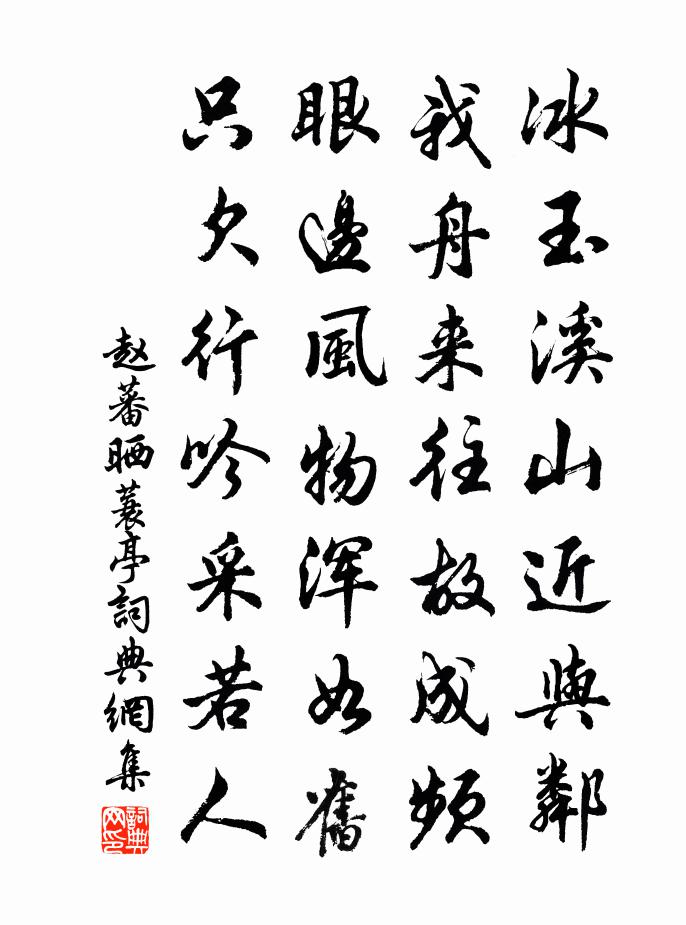 冰玉溪山近與鄰
我舟来往故成頻
眼邊風物渾如舊
只欠行吟采若人
赵蕃晒蓑亭詞典網集
詞典网印